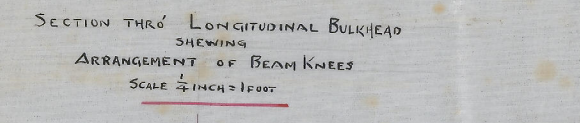 SECTION THRO' LONGITUDINAL BULKHEAD
SHEWING
ARRANGEMENT OF BEAM KNEES
SCALE 1/4 INCH = 1 FOOT